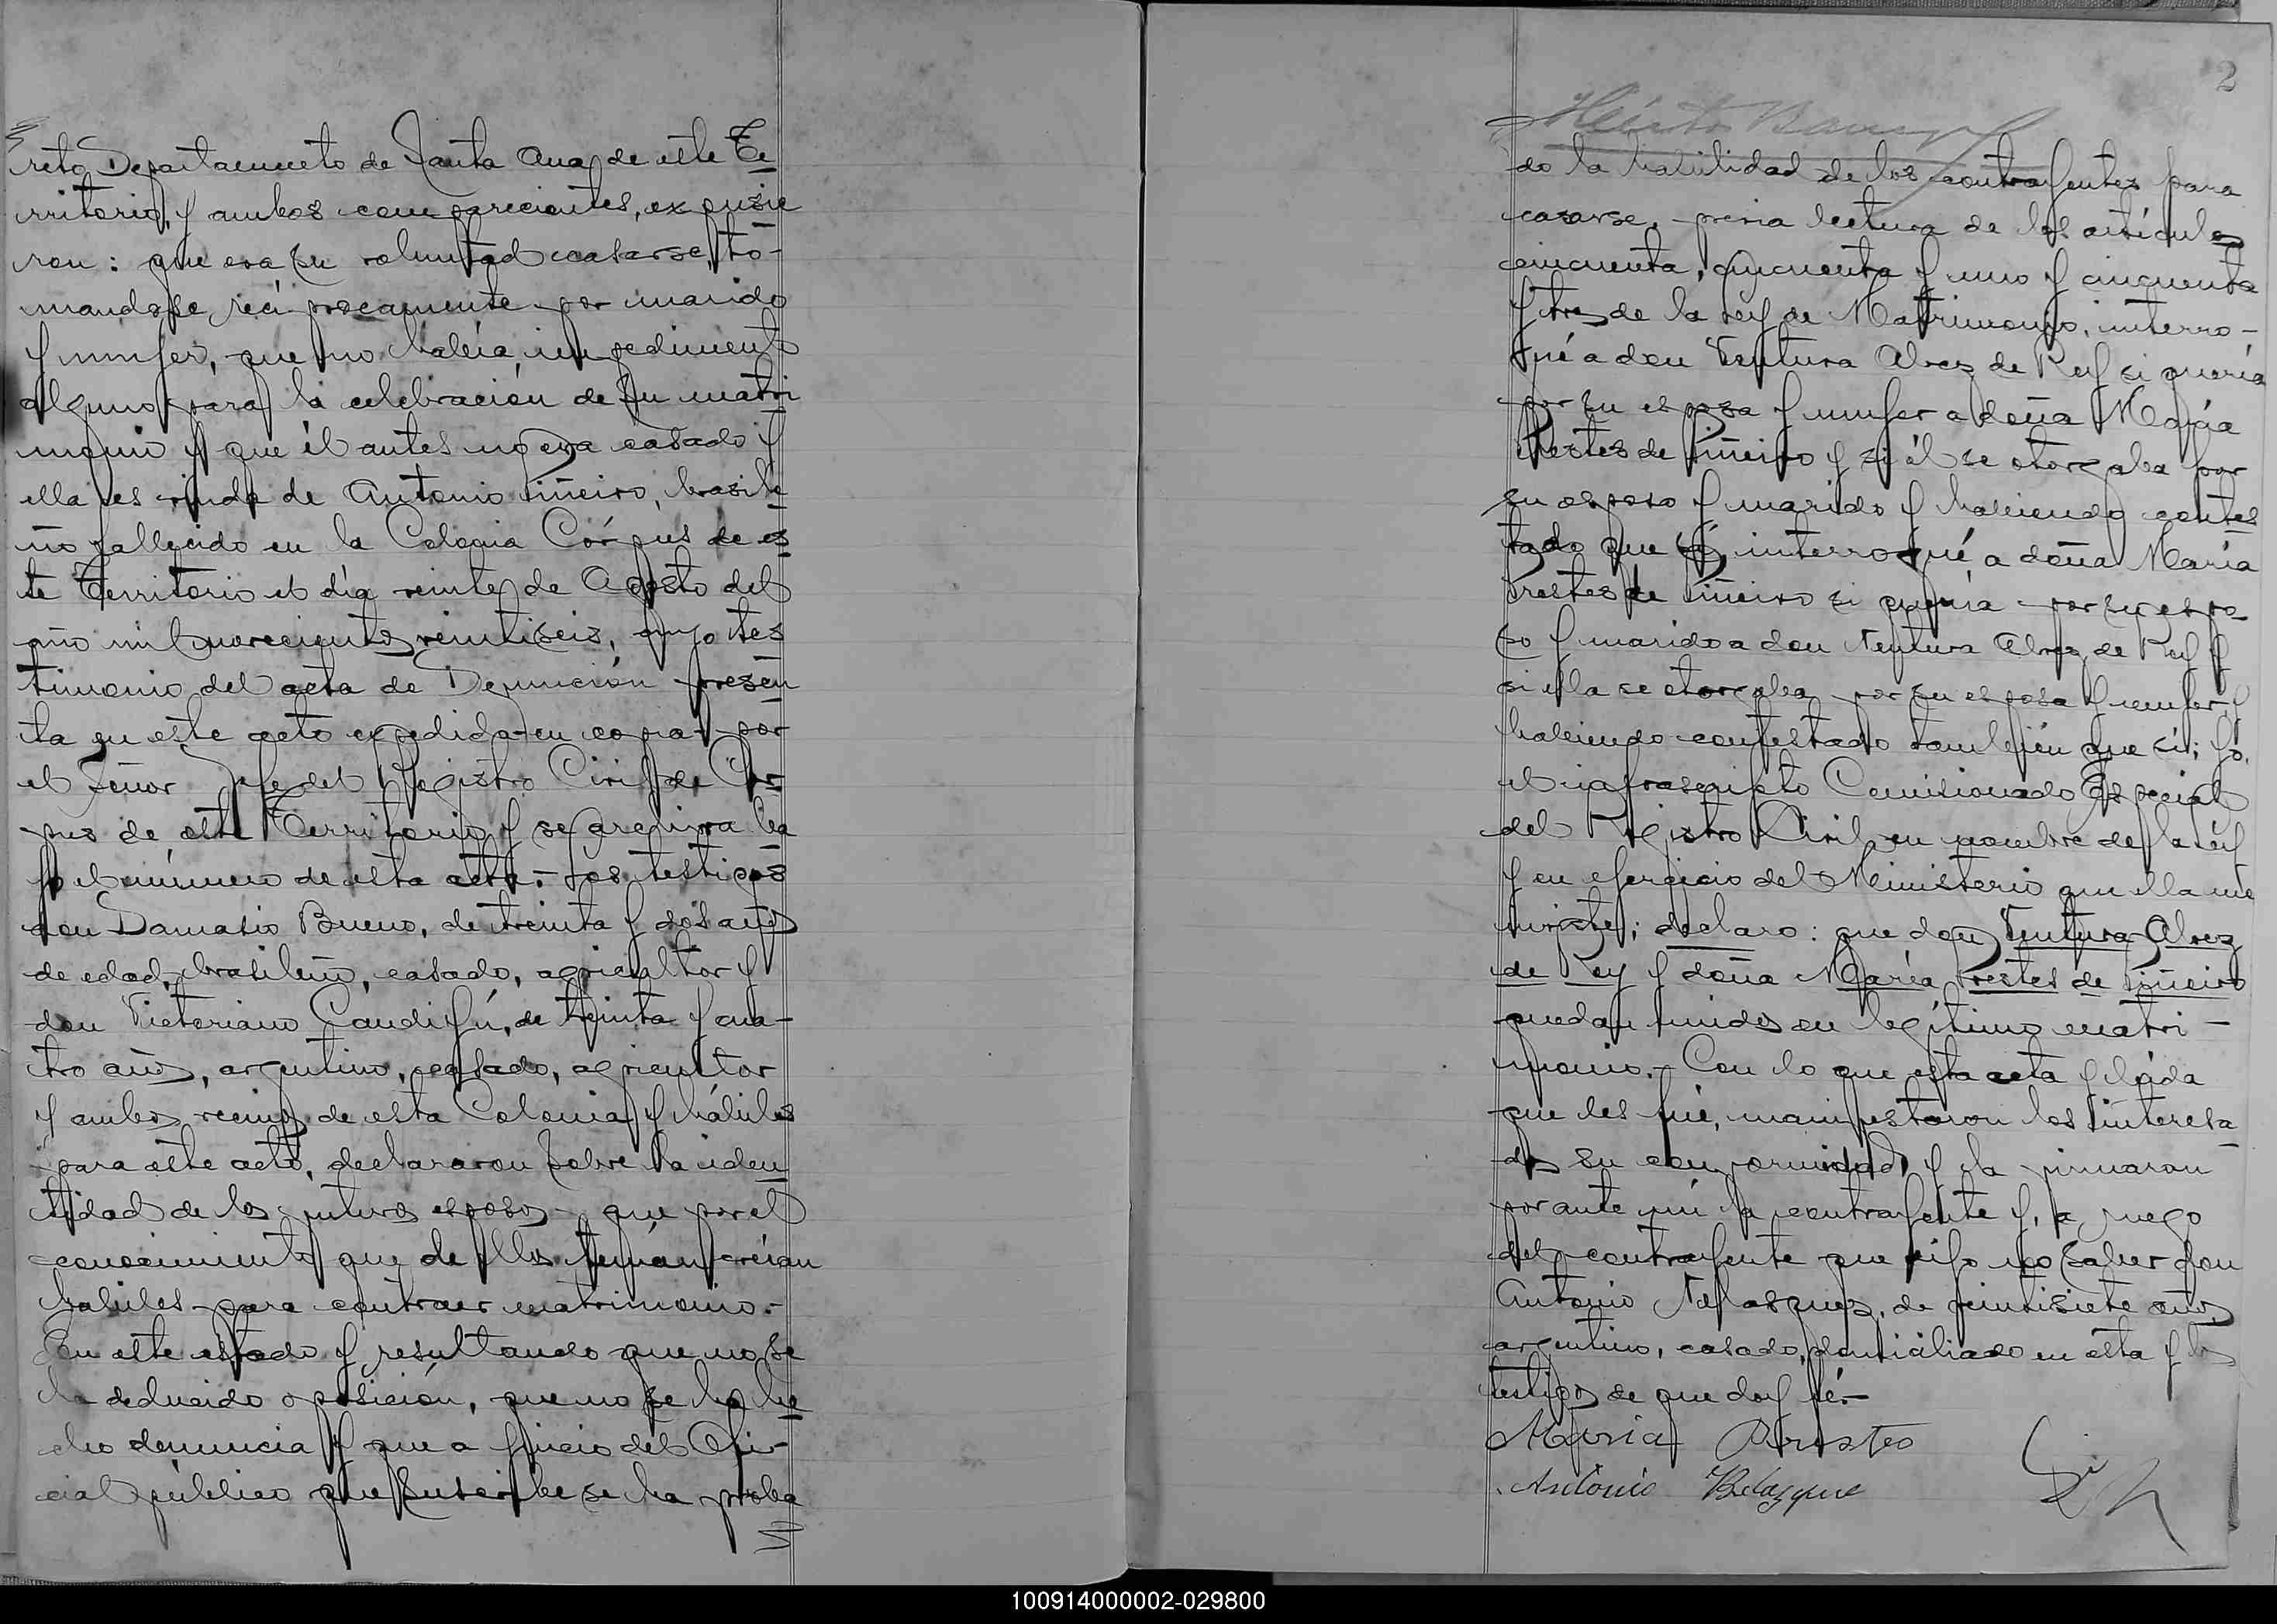 reto Departamento de Santa Ana, de este Te
rritorio, y ambos comparecientes, expusie
ron: que era su voluntad casarse, to-
mandose recíprocamente por marido
y mujer, que no había impedimento
alguno para la celebración de su matri
monio y que él antes no era casado y
ella es viuda de Antonio Piñeiro, brasile
ño fallecido en la Colonia Córpus de es
te Territorio el día veinte de Agosto del
año mil novecientos veintiseis, cuyo tes
timonio del acta de Defunción presen
ta en este acto expedida en copia por
el Señor Jefe del Registro Civil de Cor
pus de este Territorio y se archiva ba
jo el número de esta acta.- Los testigos
don Damasio Bueno, de treinta y dos años
de edad, brasileño, casado, agricultor y
don Victoriano Candijú, de treinta y cua-
tro años, argentino, casado, agricultor
y ambos vecinos de esta Colonia y hábiles
para este acto, declararon sobre la iden
tidad de los futuros esposos, que por el
conocimiento que de ellos tenían creían
habiles para contraer matrimonio.-
En este estado y resultando que no se
ha deducido oposición, que no se ha he
cho denuncia y que a juicio del Ofi-
cial público que suscribe se ha proba
2
do la habilidad de los contrayentes para
casarse, previa lectura de los artículos
cincuenta, cincuenta y uno y cincuenta
y tres de la ley de Matrimonio, interro-
gué a don Ventura Alvez de Rey si quería
por su esposa y mujer a doña María
Prestes de Piñeiro y si él se otorgaba por
su esposo y marido y habiendo contes
tado que sí, interrogué a doña María
Prestes de Piñeiro si quería por su espo
so y marido a don Ventura Alvez de Rey y
si ella se otorgaba por su esposa y mujer y
habiendo contestado también que sí; yo,
el infrascripto Comisionado Especial
del Registro Civil en nombre de la ley
y en ejercicio del Ministerio que ella me
inviste; declaro: que don Ventura Alvez
de Rey y doña María Prestes de Piñeiro
quedan unidos en legítimo matri-
monio.- Con lo que esta acta y leída
que les fué, manifestaron los interesa
dos su conformidad y la firmaron
por ante mí la contrayente y, a ruego
del contrayente que dijo no saber don
Antonio Velasquez, de veintisiete años,
argentino, casado, domiciliado en esta y los
testigos de que doy fé.-
Maria Prestes
Antonio Belasques
100914000002-029800